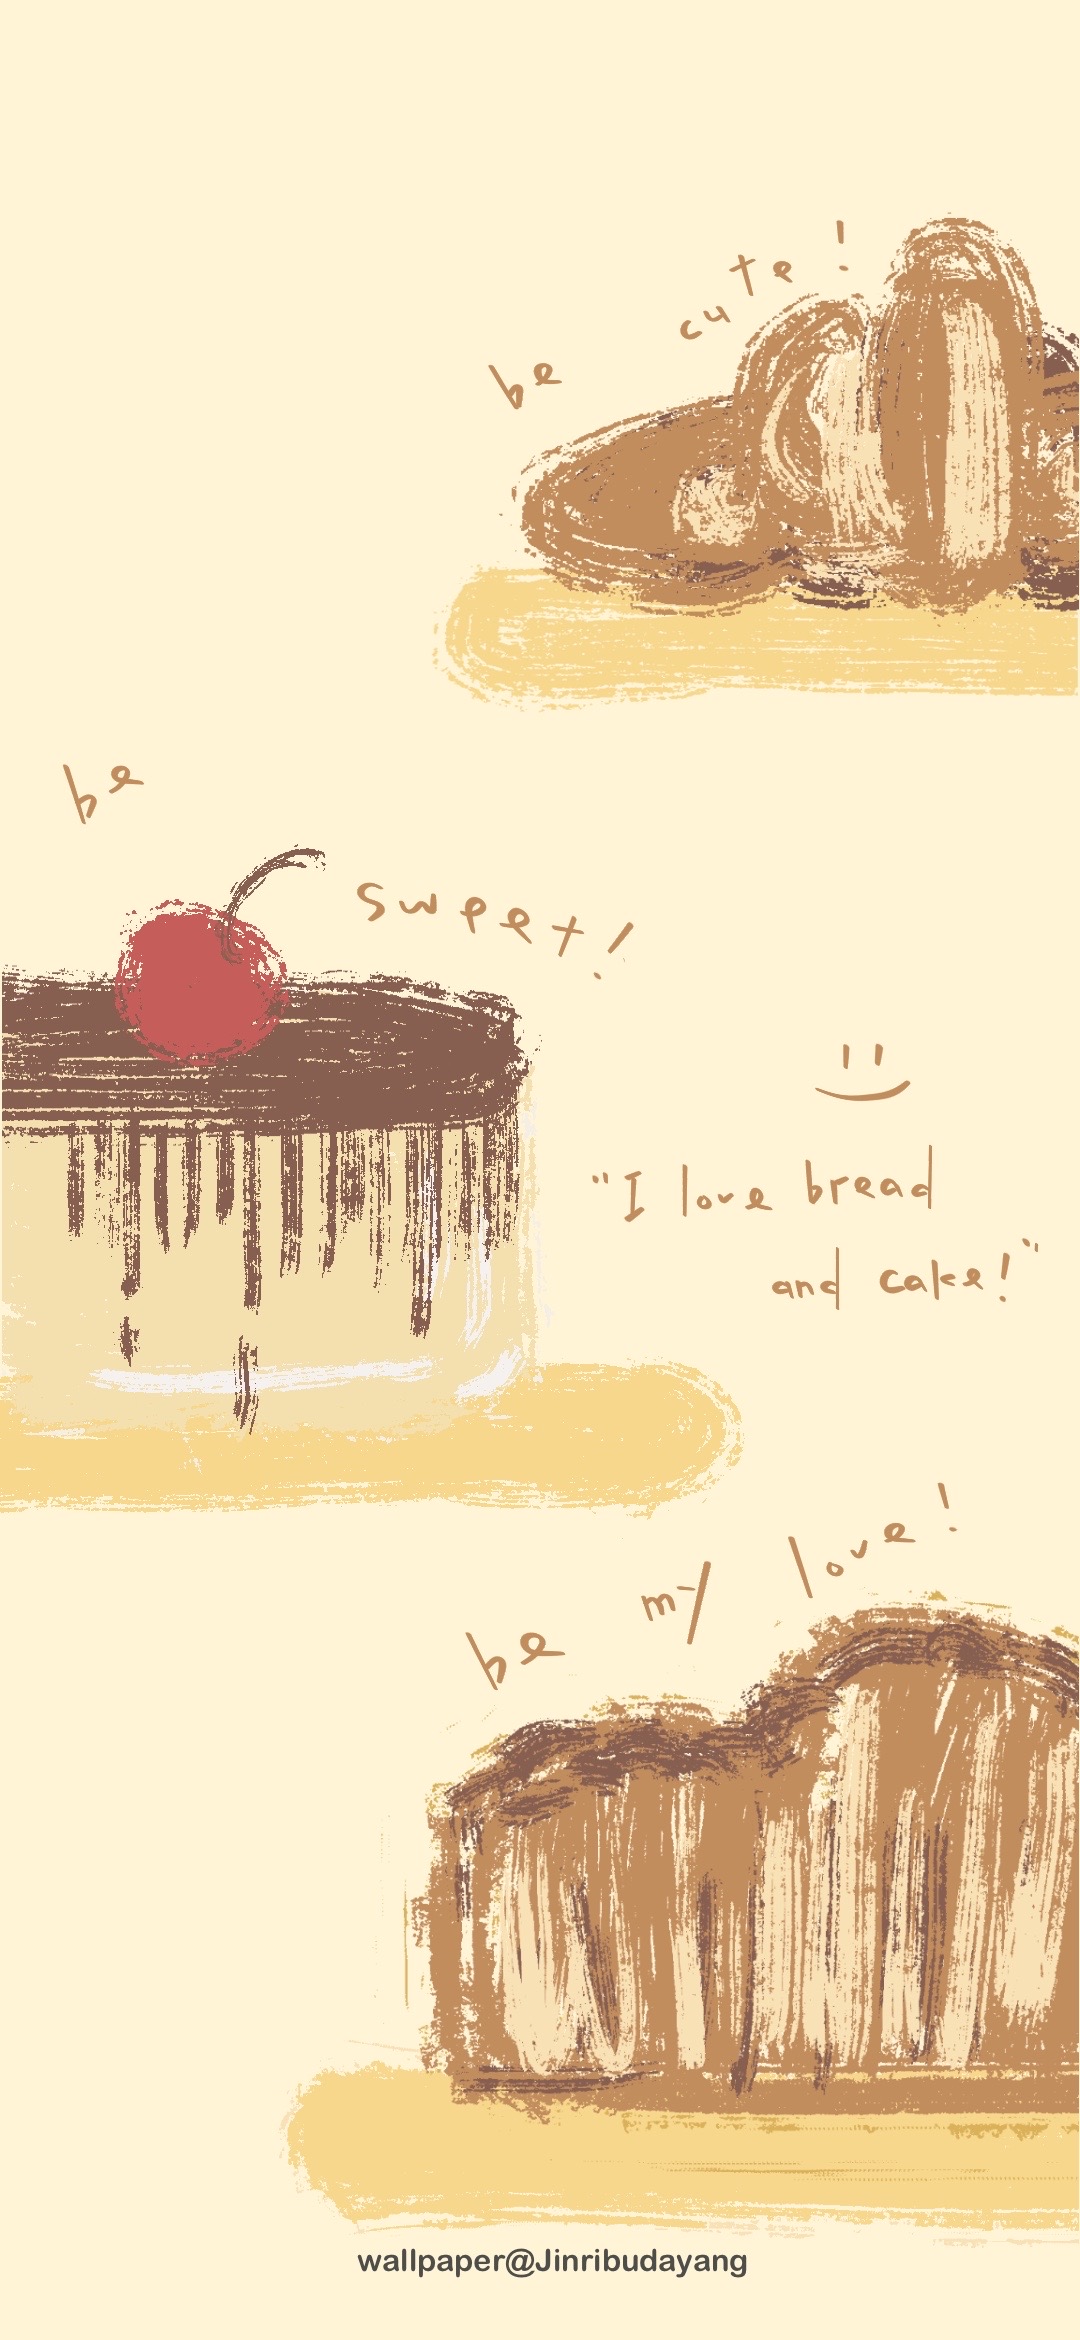 be cute!
be sweet!
"I love bread
and cake!"
be my love!
wallpaper@Jinribudayang